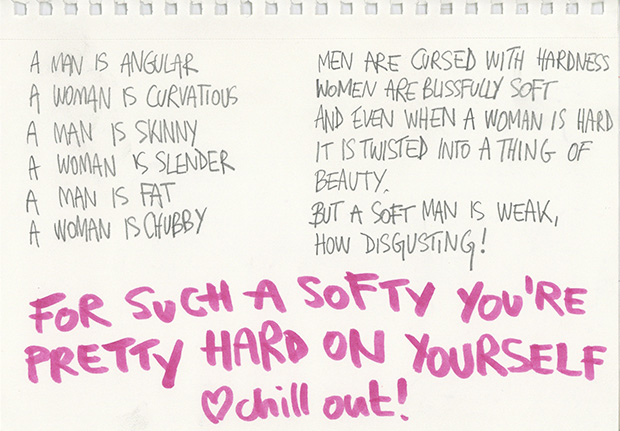 A MAN IS ANGULAR
A WOMAN IS CURVATIOUS
A MAN IS SKINNY
A WOMAN IS SLENDER
A MAN IS FAT
A WOMAN IS CHUBBY
MEN ARE CURSED WITH HARDNESS
WOMEN ARE BLISSFULLY SOFT
AND EVEN WHEN A WOMAN IS HARD
IT IS TWISTED INTO A THING OF
BEAUTY.
BUT A SOFT MAN IS WEAK,
HOW DISGUSTING!
FOR SUCH A SOFTY YOU'RE
PRETTY HARD ON YOURSELF
♡chill out!